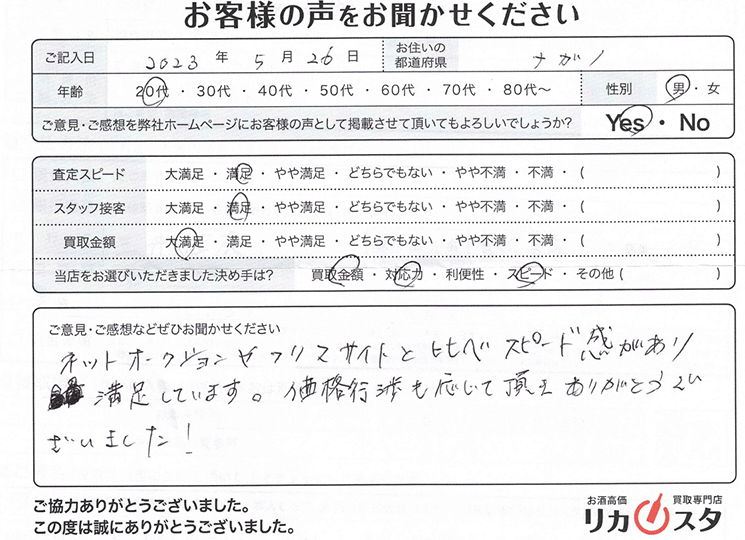 お客様の声をお聞かせください
ご記入日 2023 年 5 月 26 日 お住いの都道府県 ナガノ
年齢 20代 ・ 30代 ・ 40代 ・ 50代 ・ 60代 ・ 70代 ・ 80代～ 性別 男 ・ 女
ご意見・ご感想を弊社ホームページにお客様の声として掲載させて頂いてもよろしいでしょうか? Yes ・ No
査定スピード 大満足 ・ 満足 ・ やや満足 ・ どちらでもない ・ やや不満 ・ 不満 ・ ( )
スタッフ接客 大満足 ・ 満足 ・ やや満足 ・ どちらでもない ・ やや不満 ・ 不満 ・ ( )
買取金額 大満足 ・ 満足 ・ やや満足 ・ どちらでもない ・ やや不満 ・ 不満 ・ ( )
当店をお選びいただきました決め手は? 買取金額 ・ 対応力 ・ 利便性 ・ スピード ・ その他 ( )
ご意見・ご感想などぜひお聞かせください
ネットオークションやフリマサイトと比べスピード感があり
満足しています。価格行渉も応じて頂きありがとうご
ざいました!
ご協力ありがとうございました。
この度は誠にありがとうございました。
お酒高価 買取専門店
リカスタ